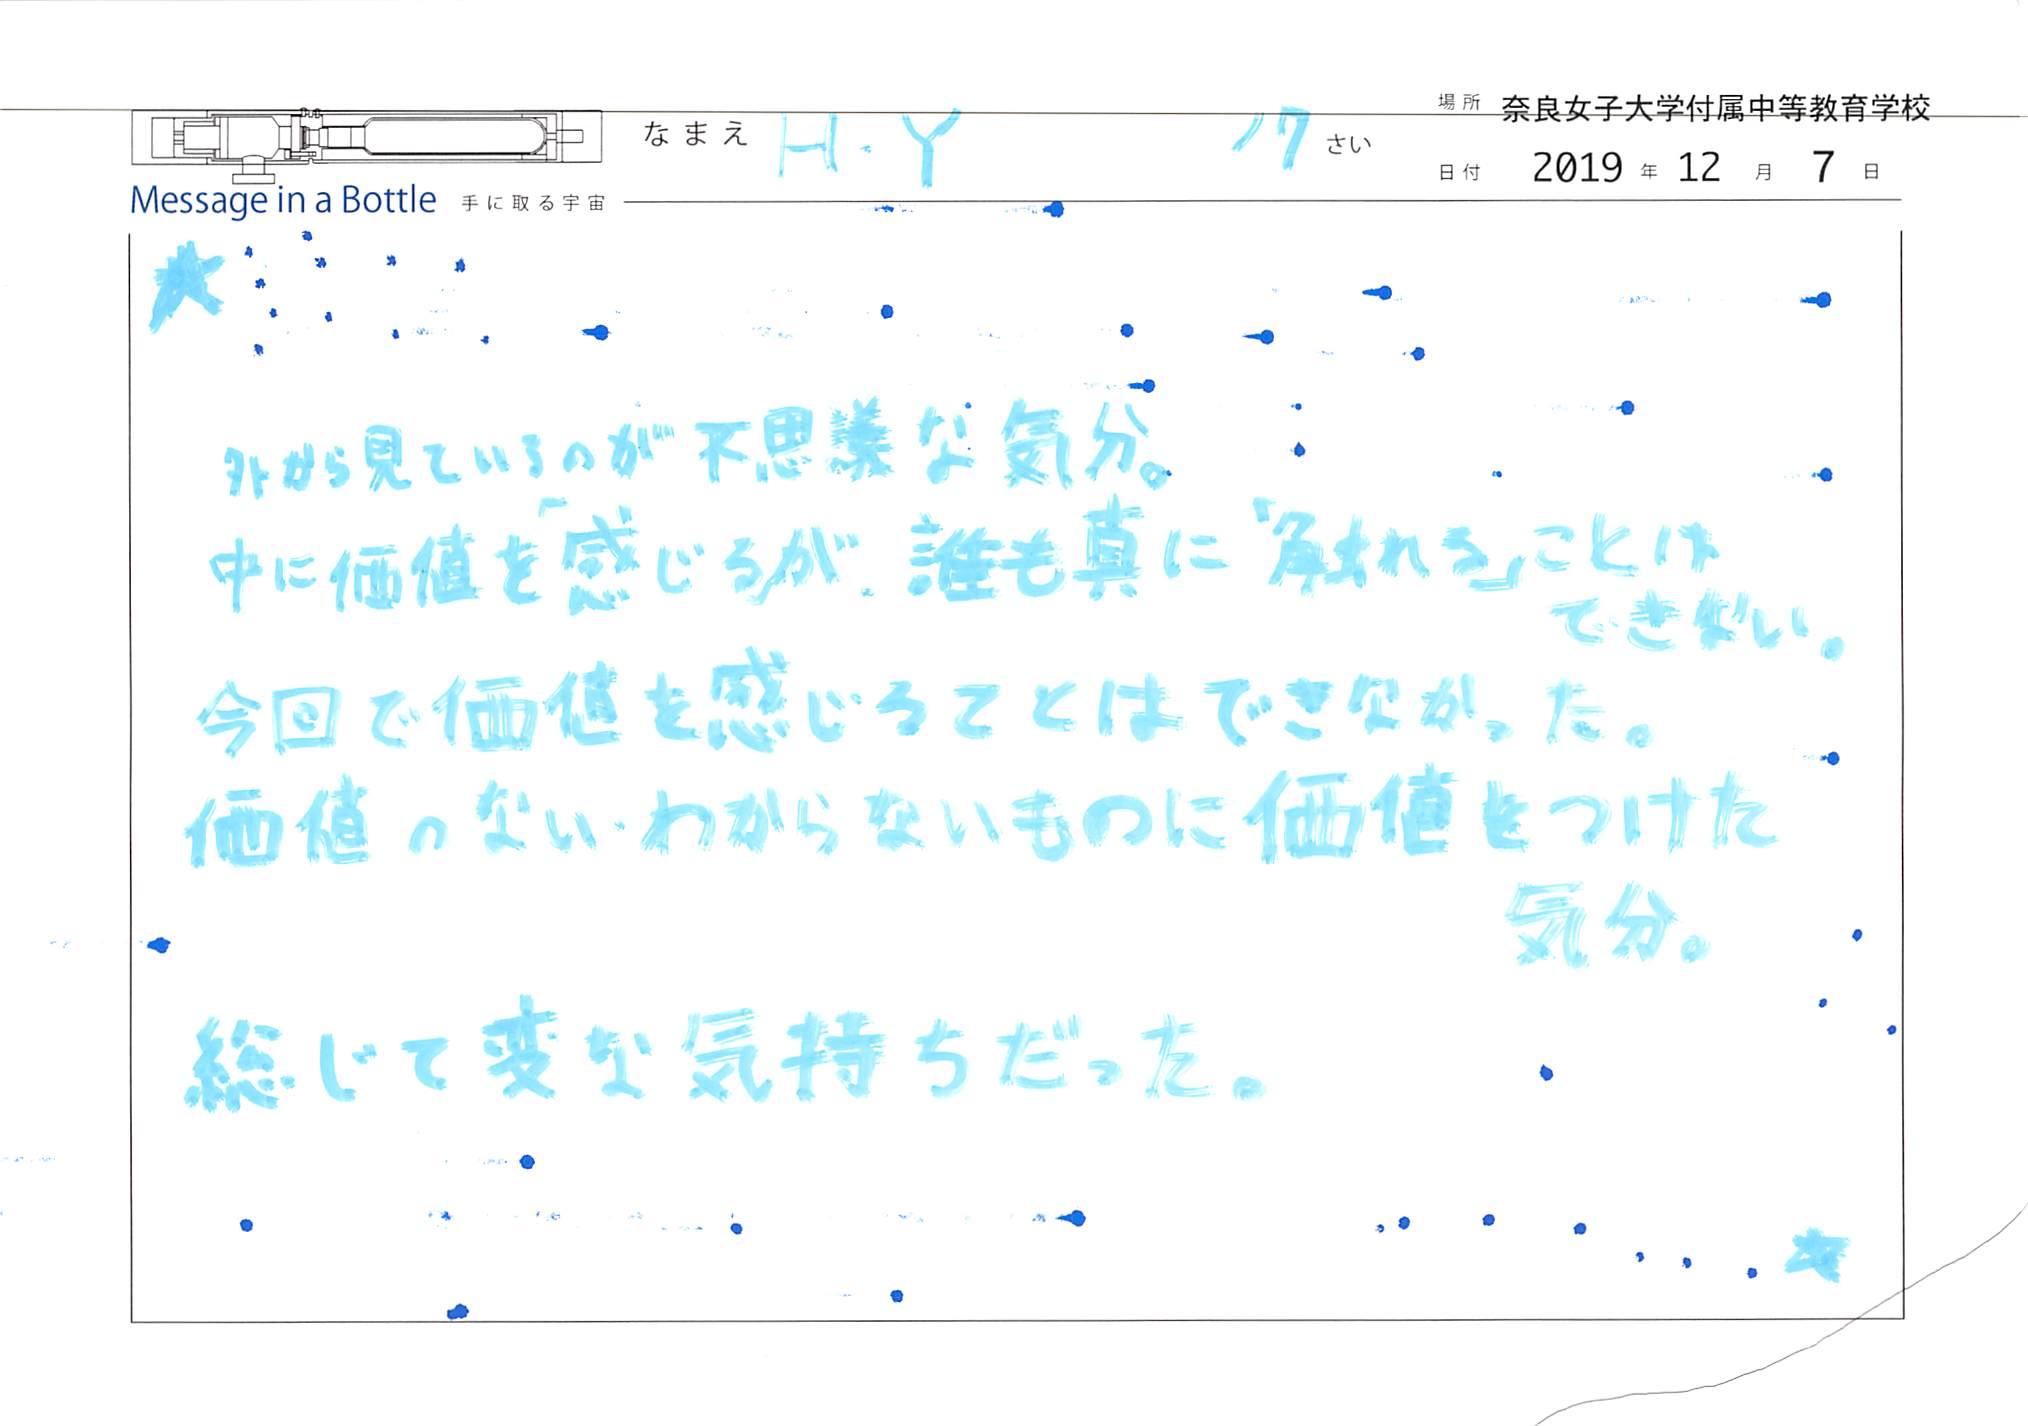 場所 奈良女子大学付属中等教育学校
なまえ H.Y 17 さい
日付 2019 年 12 月 7 日
Message in a Bottle 手に取る宇宙
外から見ているのが不思議な気分。
中に価値を「感じる」が、誰も真に「触れる」ことは
できない。
今回で価値を感じることはできなかった。
価値のない・わからないものに価値をつけた
気分。
総じて変な気持ちだった。